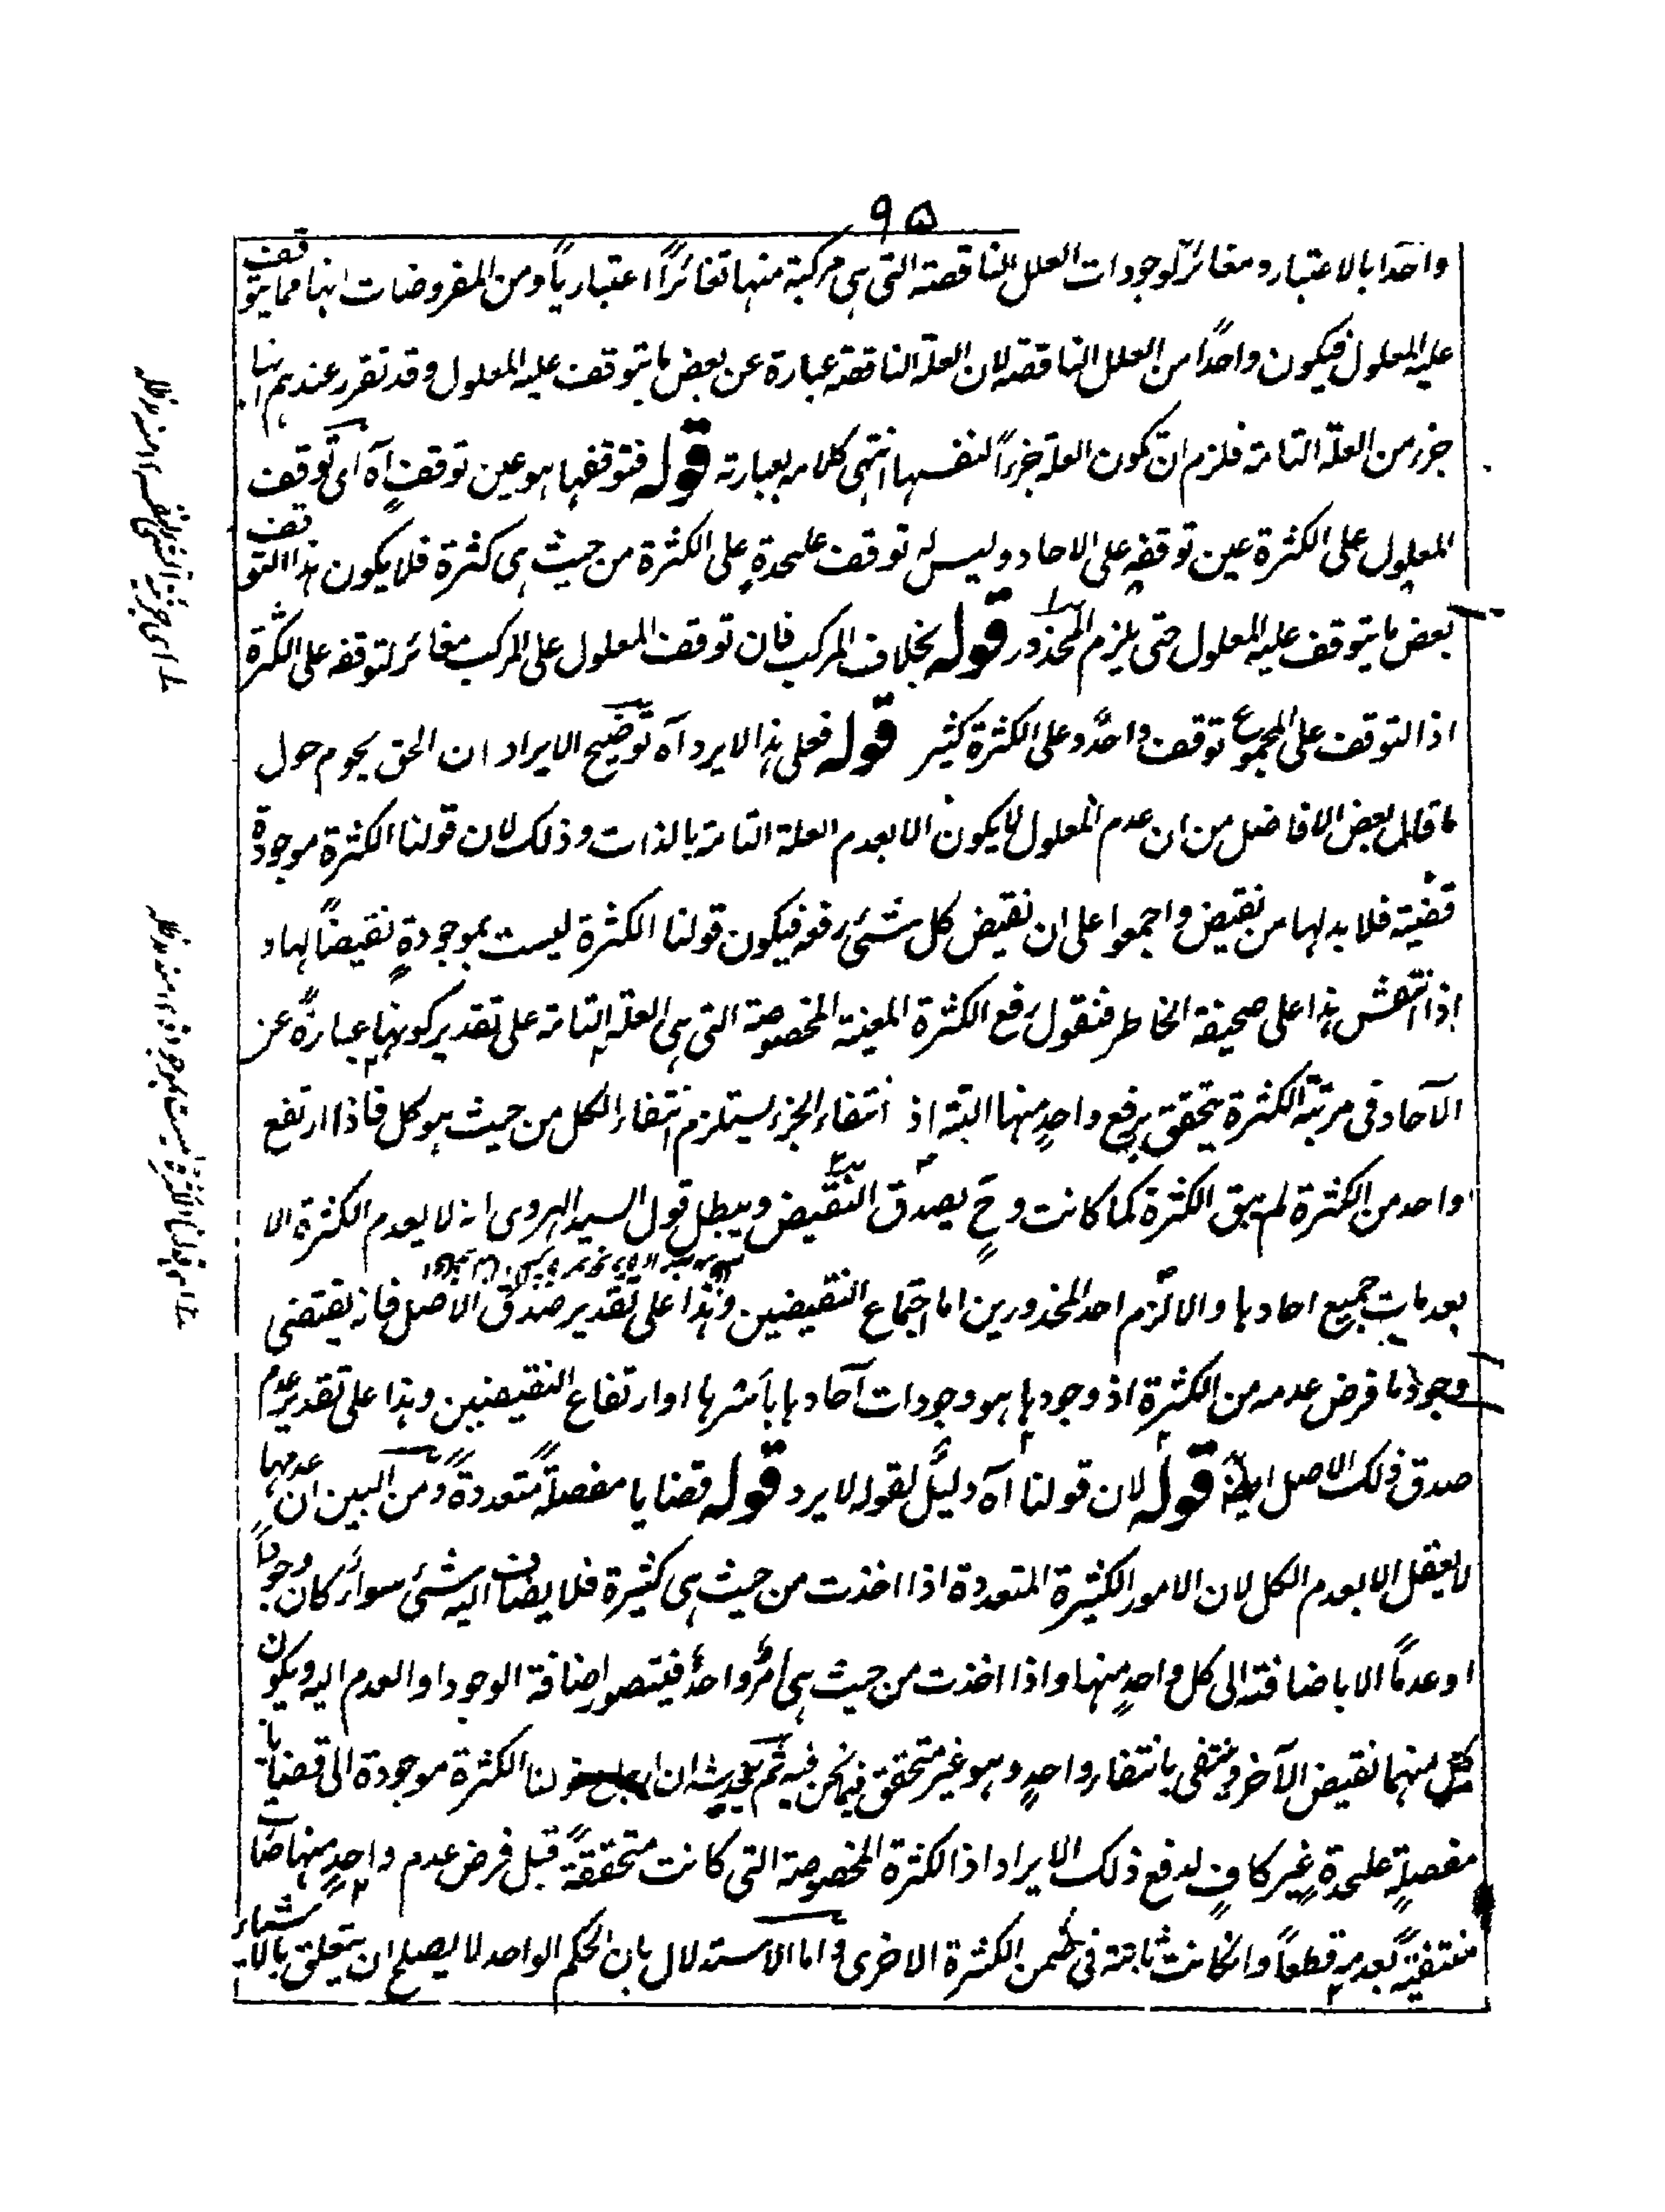 ٩٥
واحدا بالاعتبار ومغائرٌ لوجودات العلل الناقصة التى هى مركبة منها تغائرًا اعتباريًا ومن المفروضات انها مما يتوقف
عليه المعلول فيكون واحدًا من العلل الناقصة لان العلة الناقصة عبارة عن بعض ما يتوقف عليه المعلول وقد تقرر عندهم انها
جزء من العلة التامة فلزم ان تكون العلة جزءًا لنفسها انتهى كلامه بعبارته قوله فتوقفها هو عين توقفٍ آه اى توقف
المعلول على الكثرة عين توقفه على الاحاد وليس له توقف عليحدةٍ على الكثرة من حيث هى كثرة فلا يكون هذا التوقف
بعض ما يتوقف عليه المعلول حتى يلزم المحذور قوله بخلاف المركب فان توقف المعلول على المركب مغائر لتوقفه على الكثرة
اذ التوقف على المجموع توقف واحدٌ وعلى الكثرة كثير قوله فعلى هذا لايرد آه توضيح الايراد ان الحق يحوم حول
ما قال بعض الافاضل من ان عدم المعلول لا يكون الا بعدم العلة التامة بالذات وذلك لان قولنا الكثرة موجودة
قضية فلا بد لها من نقيض واجمعوا على ان نقيض كل شئ رفعه فيكون قولنا الكثرة ليست بموجودةٍ نقيضًا لها و
اذا انتقش هذا على صحيفة الخاطر فنقول رفع الكثرة المعينة المخصوصة التى هى العلة التامة على تقدير كونها عبارةً عن
الآحاد فى مرتبة الكثرة يتحقق برفع واحدٍ منها البتة اذ انتفاء الجزء يستلزم انتفاء الكل من حيث هو كل فاذا ارتفع
واحد من الكثرة لم تبق الكثرة كما كانت وحٍ يصدق النقيض ويبطل قول السيد الهروى انه لا يعدم الكثرة الا
بعدمات جميع احادها والا لزم احد المحذورين اما اجتماع النقيضين وهذا على تقدير صدق الاصل فانه يقتضى
وجود ما فرض عدمه من الكثرة اذ وجودها هو وجودات آحادها بأسرها او ارتفاع النقيضين وهذا على تقدير عدم
صدق ذلك الاصل ايضًا قوله لان قولنا آه دليلٌ لقوله لا يرد قوله قضايا مفصلةً متعددةً ومن البين ان عدمها
لا يعقل الا بعدم الكل لان الامور الكثيرة المتعددة اذا اخذت من حيث هى كثيرة فلا يضاف اليه شئ سواء كان وجودًا
او عدمًا الا باضافته الى كل واحدٍ منها واذا اخذت من حيث هى امرٌ واحدٌ فيتصور اضافة الوجود او العدم اليه ويكون
كل منهما نقيض الآخر وينتفى بانتفاء واحدٍ وهو غير متحقق فيما نحن فيه ثم يخدشه ان قولنا الكثرة موجودة الى قضايا
مفصلةٍ عليحدةٍ غير كافٍ لدفع ذلك الايراد اذ الكثرة المخصوصة التى كانت متحققةً قبل فرض عدم واحدٍ منها صارت
منتفيةً بعدمه قطعًا وان كانت ثابتة فى ضمن الكثرة الاخرى واما الاستدلال بان الحكم الواحد لا يصلح ان يتعلق بالاشياء